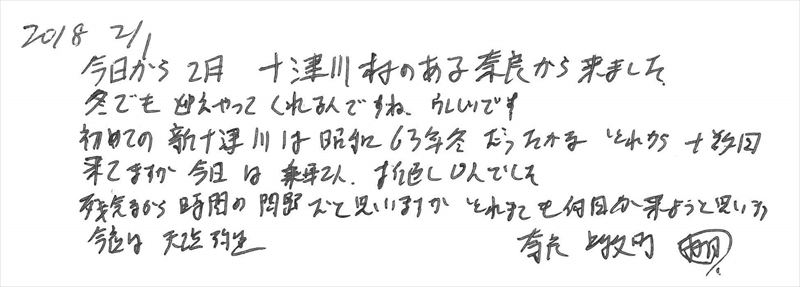 2018 2/1
今日から2月 十津川村のある奈良から来ました
冬でも 迎えやってくれるんですね、うれしいです
初めての新十津川は昭和63年冬だったかな それから十数回
来てますが今日は
残念ながら時間の問題だと思いますが それまでも何回か来ようと思います
今度は
奈良